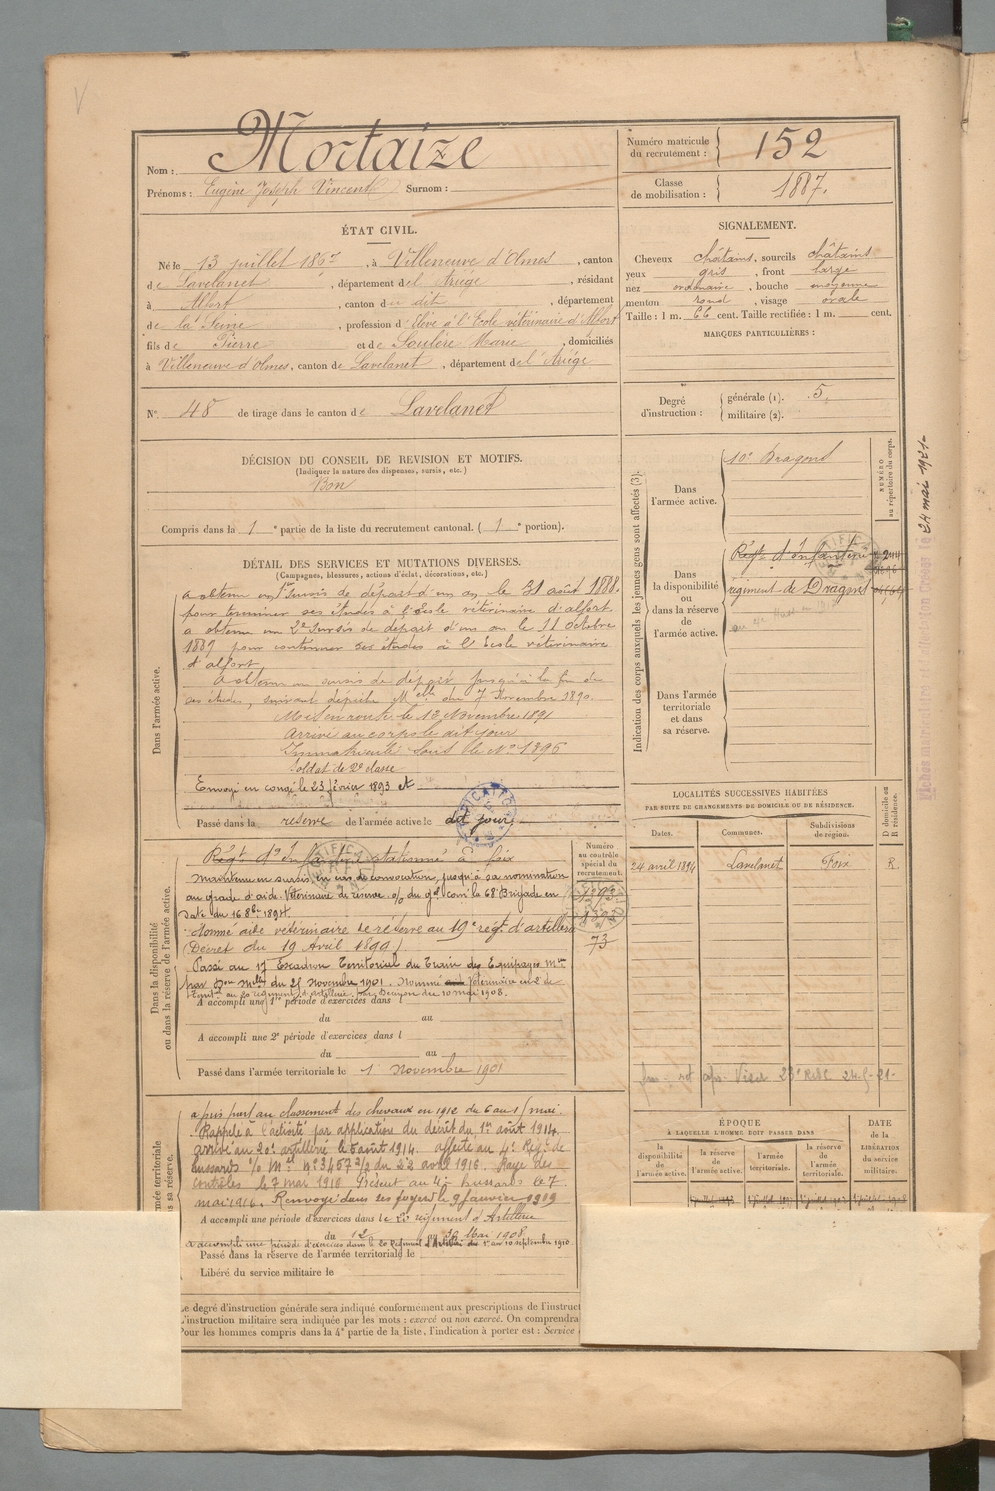 Nom : Mortaize
Prénoms : Eugène Joseph Vincent Surnom :
Numéro matricule du recrutement : 152
Classe de mobilisation : 1887.
ÉTAT CIVIL.
Né le 13 juillet 1867, à Villeneuve d'Olmes, canton
de Lavelanet, département de l'Ariége, résidant
à Alfort, canton du dit, département
de la Seine, profession d'Elève à l'Ecole vétérinaire d'Alfort
fils de Pierre et de Soulère Marie, domiciliés
à Villeneuve d'Olmes, canton de Lavelanet, département de l'Ariége
N° 48 de tirage dans le canton de Lavelanet
SIGNALEMENT.
Cheveux châtains, sourcils châtains
yeux gris, front large
nez ordinaire, bouche moyenne
menton rond, visage ovale
Taille : 1 m. 66 cent. Taille rectifiée : 1 m. cent.
MARQUES PARTICULIÈRES :
Degré d'instruction : générale (1). 5.
militaire (2).
DÉCISION DU CONSEIL DE REVISION ET MOTIFS.
(Indiquer la nature des dispenses, sursis, etc.)
Bon
Compris dans la 1e partie de la liste du recrutement cantonal. (1e portion).
DÉTAIL DES SERVICES ET MUTATIONS DIVERSES.
(Campagnes, blessures, actions d'éclat, décorations, etc.)
Dans l'armée active.
a obtenu un 1er sursis de départ d'un an le 31 août 1888.
pour terminer ses études à l'école vétérinaire d'alfort
a obtenu un 2e sursis de départ d'un an le 11 octobre
1889 pour continuer ses études à l'Ecole vétérinaire
d'alfort
a obtenu un sursis de départ jusqu'à la fin de
ses études, suivant dépêche Melle du 7 Novembre 1890.
Mis en route le 12 Novembre 1891
Arrivé au corps le dit jour
Immatriculé sous le N° 1396
soldat de 2e classe
Envoyé en congé le 23 février 1893 et
Passé dans la réserve de l'armée active le dit jour.
Indication des corps auxquels les jeunes gens sont affectés (3).
NUMÉRO au répertoire du corps.
Dans l'armée active.
10e Dragons
Dans la disponibilité ou dans la réserve de l'armée active.
Régt d'Infanterie
régiment de Dragons
Dans l'armée territoriale et dans sa réserve.
24 mai 1921
LOCALITÉS SUCCESSIVES HABITÉES
PAR SUITE DE CHANGEMENTS DE DOMICILE OU DE RÉSIDENCE.
Dates. Communes. Subdivisions de région. D domicile ou R résidence.
24 avril 1894 Lavelanet Foix R.
Dans la disponibilité ou dans la réserve de l'armée active.
Numéro au contrôle spécial du recrutement.
1393
1393
73
Régt d'Infanterie stationné à Foix
Maintenu en sursis, en cas de convocation, jusqu'à sa nomination
au grade d'aide Vétérinaire de réserve. o/o du gal Comt la 68e Brigade en
date du 16 8bre 1894
Nommé aide vétérinaire de réserve au 19e régt d'artillerie
(Décret du 19 Avril 1899)
Passé au 17 Escadron Territorial du Train des Equipages Mres
par Don Melle du 25 Novembre 1901. Nommé Vétérinaire en 2e
A accompli une 1re période d'exercices dans
du au
A accompli une 2e période d'exercices dans l
du au
Passé dans l'armée territoriale le 1 Novembre 1901
a pris part au classement des chevaux en 1912 du 6 au 15 mai.
Rappelé à l'activité par application du décret du 1er août 1914
arrivé au 20e artillerie le 6 août 1914. affecté au 4e Régt de
hussards o/o Mel N° 34572/2 du 22 avril 1916. Rayé des
contrôles le 7 mai 1916. Présent au 4e hussards le 7
mai 1916. Renvoyé dans ses foyers le 9 janvier 1919
A accompli une période d'exercices dans le 20 régiment d'Artillerie
du 12 au 26 Mai 1908
a accompli une période d'exercices dans le 20 Régiment d'Artillerie du 1er au 10 septembre 1910
Passé dans la réserve de l'armée territoriale le
Libéré du service militaire le
ÉPOQUE
À LAQUELLE L'HOMME DOIT PASSER DANS
la disponibilité de l'armée active. la réserve de l'armée active. l'armée territoriale. la réserve de l'armée territoriale.
DATE de la LIBÉRATION du service militaire.
Le degré d'instruction générale sera indiqué conformément aux prescriptions de l'instruct
L'instruction militaire sera indiquée par les mots : exercé ou non exercé. On comprendra
Pour les hommes compris dans la 4e partie de la liste, l'indication à porter est : Service